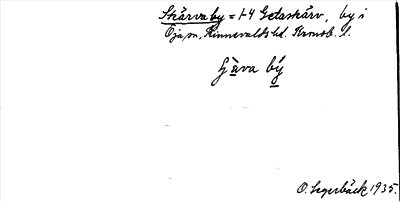 Skärvaby = 1-4 Getaskärv, by i
Öja sn, Kinnevalds hd. Kronob. l.
by
O. Segerbäck 1935.